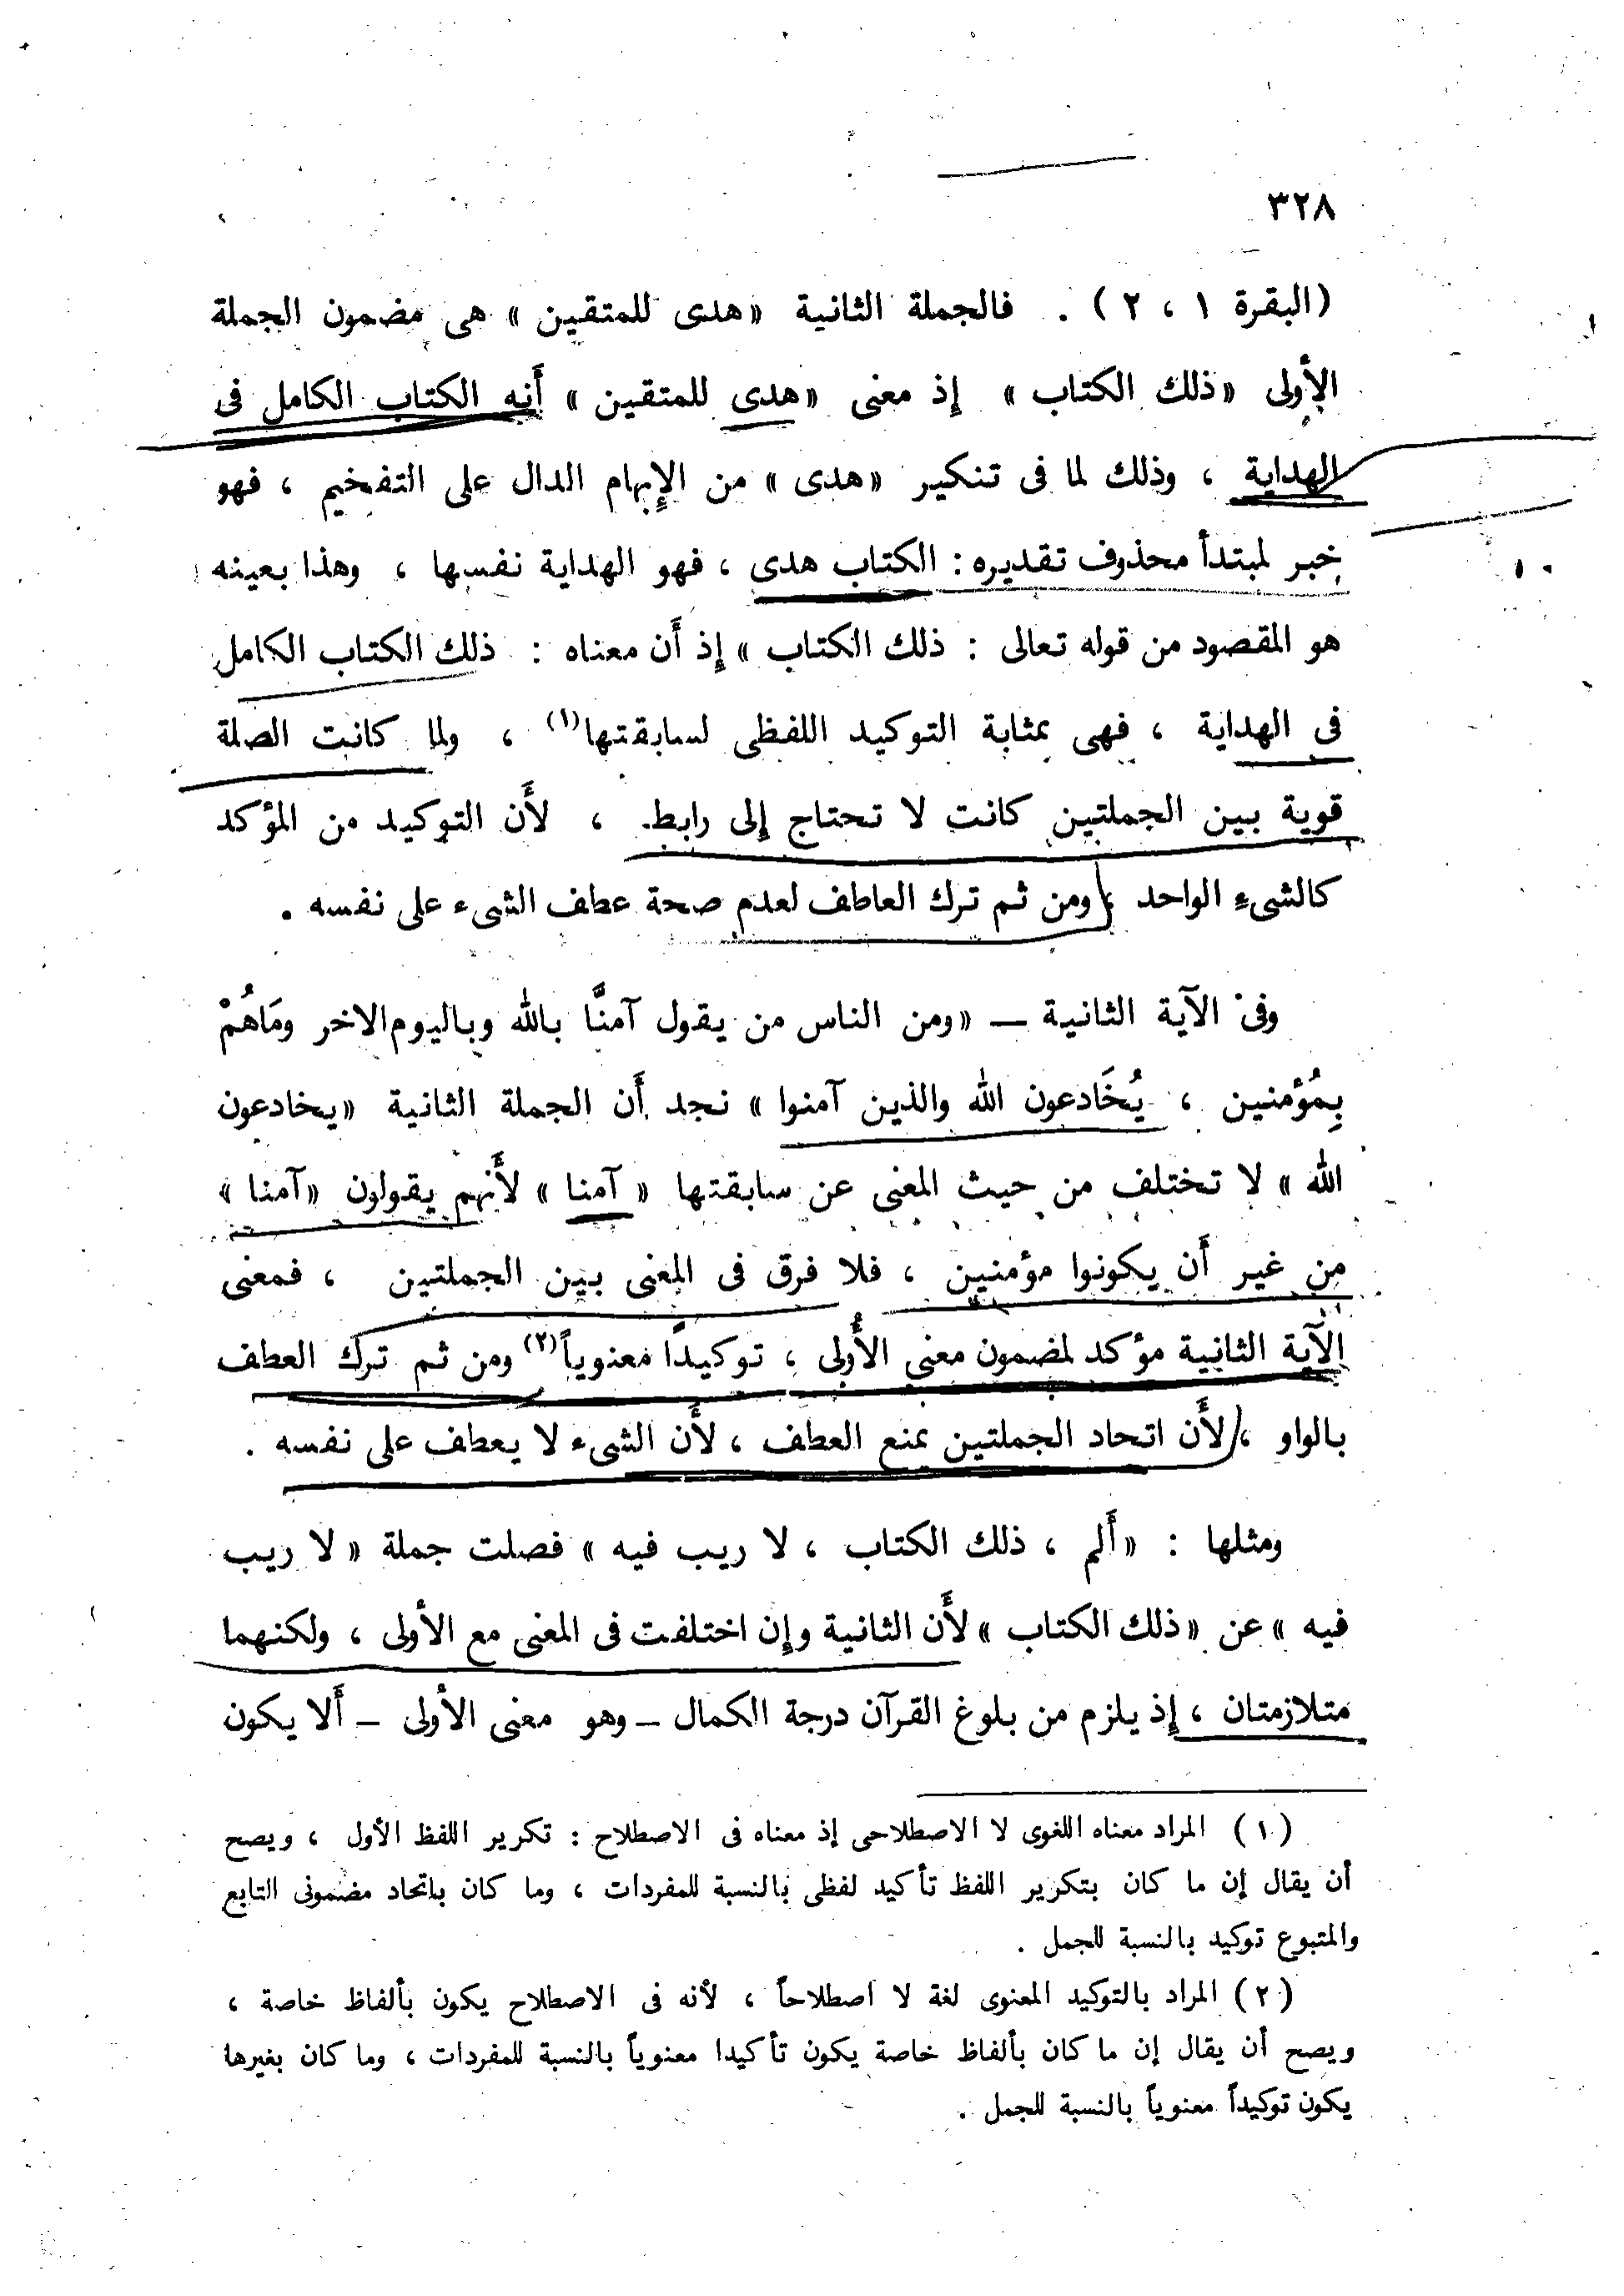 ٣٢٨
(البقرة ١ ، ٢) . فالجملة الثانية «هدى للمتقين» هى مضمون الجملة
الأولى «ذلك الكتاب» إذ معنى «هدى للمتقين» أنه الكتاب الكامل فى
الهداية ، وذلك لما فى تنكير «هدى» من الإبهام الدال على التفخيم ، فهو
خبر لمبتدأ محذوف تقديره : الكتاب هدى ، فهو الهداية نفسها ، وهذا بعينه
هو المقصود من قوله تعالى : ذلك الكتاب» إذ أن معناه : ذلك الكتاب الكامل
فى الهداية ، فهى بمثابة التوكيد اللفظى لسابقتها(١) ، ولما كانت الصلة
قوية بين الجملتين كانت لا تحتاج إلى رابط ، لأن التوكيد من المؤكد
كالشىء الواحد ، ومن ثم ترك العاطف لعدم صحة عطف الشىء على نفسه .
وفى الآية الثانية — «ومن الناس من يقول آمنَّا بالله وباليوم الاخر ومَاهُمْ
بِمُؤمنين ، يُخَادعون الله والذين آمنوا» نجد أن الجملة الثانية «يخادعون
الله» لا تختلف من حيث المعنى عن سابقتها «آمنا» لأنهم يقولون «آمنا»
من غير أن يكونوا مؤمنين ، فلا فرق فى المعنى بين الجملتين ، فمعنى
الآية الثانية مؤكد لمضمون معنى الأُولى ، توكيدًا معنوياً(٢) ومن ثم ترك العطف
بالواو ، لأن اتحاد الجملتين يمنع العطف ، لأن الشىء لا يعطف على نفسه .
ومثلها : «ألم ، ذلك الكتاب ، لا ريب فيه» فصلت جملة «لا ريب
فيه» عن «ذلك الكتاب» لأن الثانية وإن اختلفت فى المعنى مع الأولى ، ولكنهما
متلازمتان ، إذ يلزم من بلوغ القرآن درجة الكمال – وهو معنى الأولى – ألا يكون
(١) المراد معناه اللغوى لا الاصطلاحى إذ معناه فى الاصطلاح : تكرير اللفظ الأول ، ويصح
أن يقال إن ما كان بتكرير اللفظ تأكيد لفظى بالنسبة للمفردات ، وما كان باتحاد مضمونى التابع
والمتبوع توكيد بالنسبة للجمل .
(٢) المراد بالتوكيد المعنوى لغة لا اصطلاحاً ، لأنه فى الاصطلاح يكون بألفاظ خاصة ،
ويصح أن يقال إن ما كان بألفاظ خاصة يكون تأكيدا معنوياً بالنسبة للمفردات ، وما كان بغيرها
يكون توكيداً معنوياً بالنسبة للجمل .